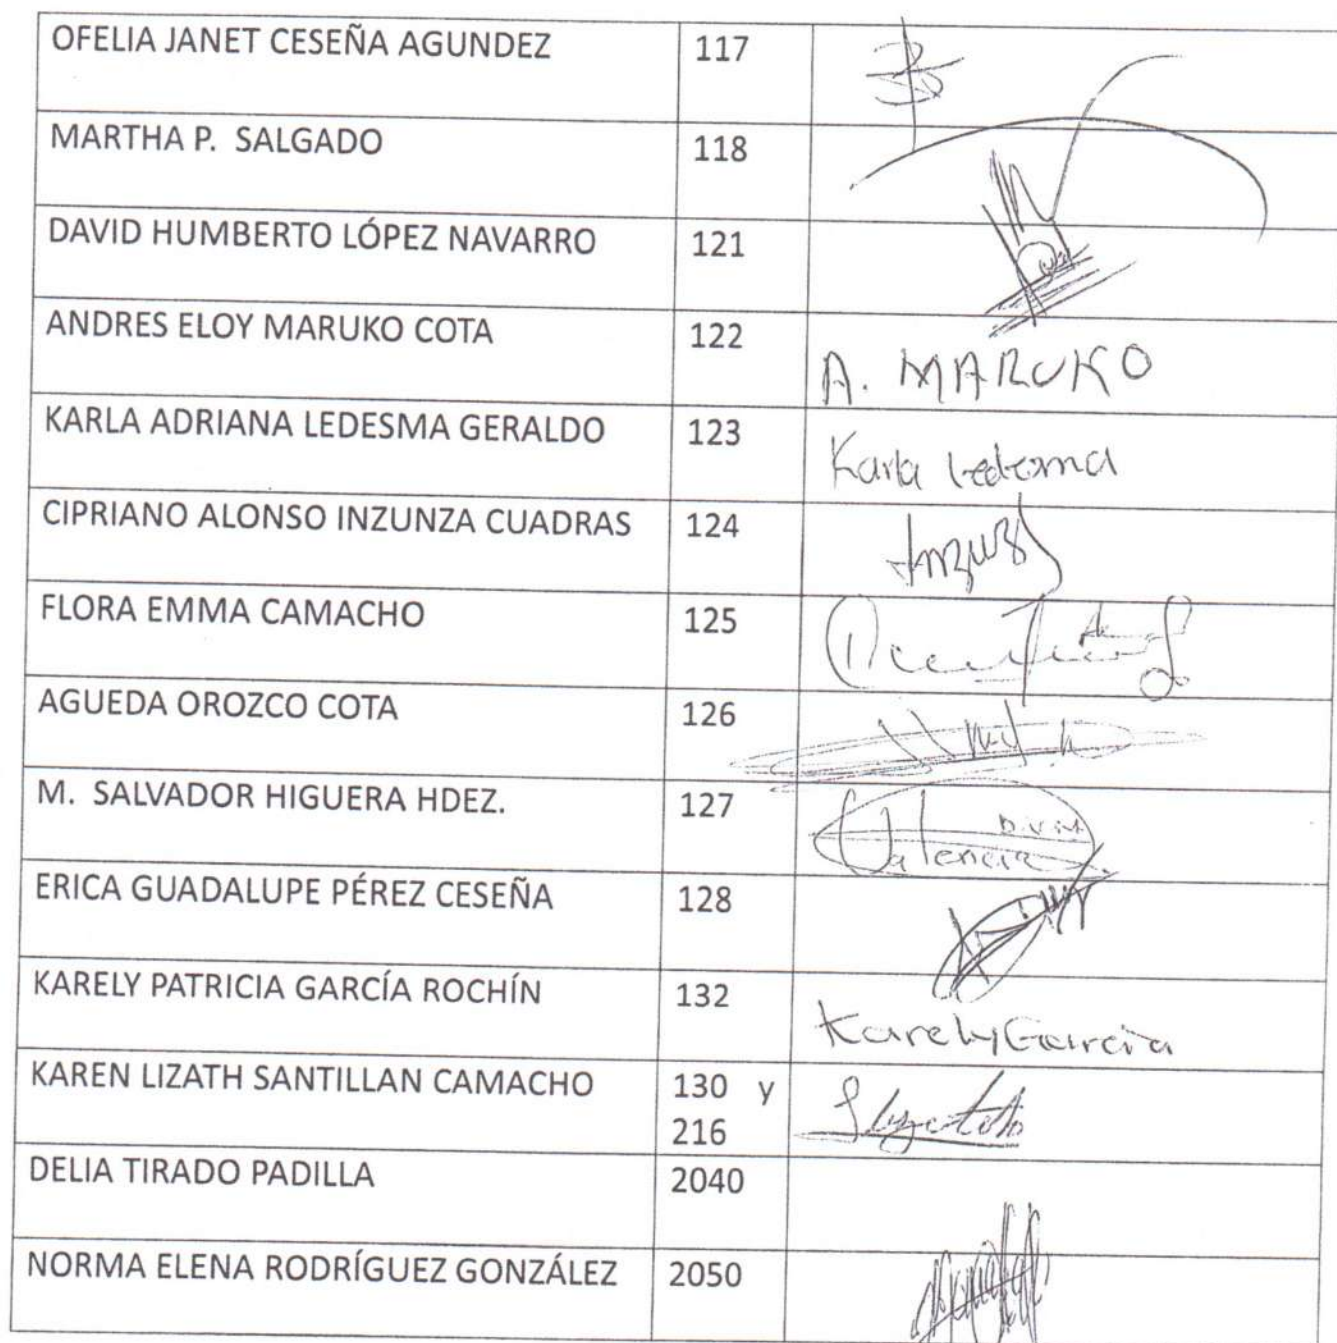 OFELIA JANET CESEÑA AGUNDEZ 117
MARTHA P. SALGADO 118
DAVID HUMBERTO LÓPEZ NAVARRO 121
ANDRES ELOY MARUKO COTA 122 A. MARUKO
KARLA ADRIANA LEDESMA GERALDO 123 Karla Ledesma
CIPRIANO ALONSO INZUNZA CUADRAS 124
FLORA EMMA CAMACHO 125
AGUEDA OROZCO COTA 126
M. SALVADOR HIGUERA HDEZ. 127 Valencia
ERICA GUADALUPE PÉREZ CESEÑA 128
KARELY PATRICIA GARCÍA ROCHÍN 132 Karely García
KAREN LIZATH SANTILLAN CAMACHO 130 y
216
DELIA TIRADO PADILLA 2040
NORMA ELENA RODRÍGUEZ GONZÁLEZ 2050